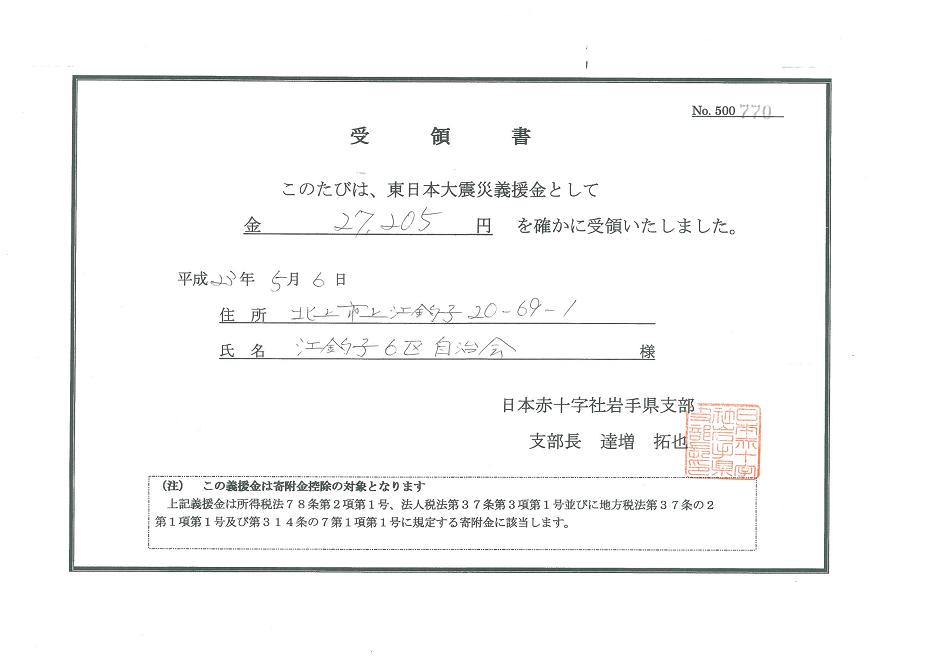 No. 500770
受 領 書
このたびは、東日本大震災義援金として
金 27,205 円 を確かに受領いたしました。
平成23年 5月 6 日
住 所 北上市上江釣子20-69-1
氏 名 江釣子6区自治会 様
日本赤十字社岩手県支部
支部長 達増 拓也
日本赤十字社岩手県支部長印
（注） この義援金は寄附金控除の対象となります
上記義援金は所得税法７８条第２項第１号、法人税法第３７条第３項第１号並びに地方税法第３７条の２
第１項第１号及び第３１４条の７第１項第１号に規定する寄附金に該当します。